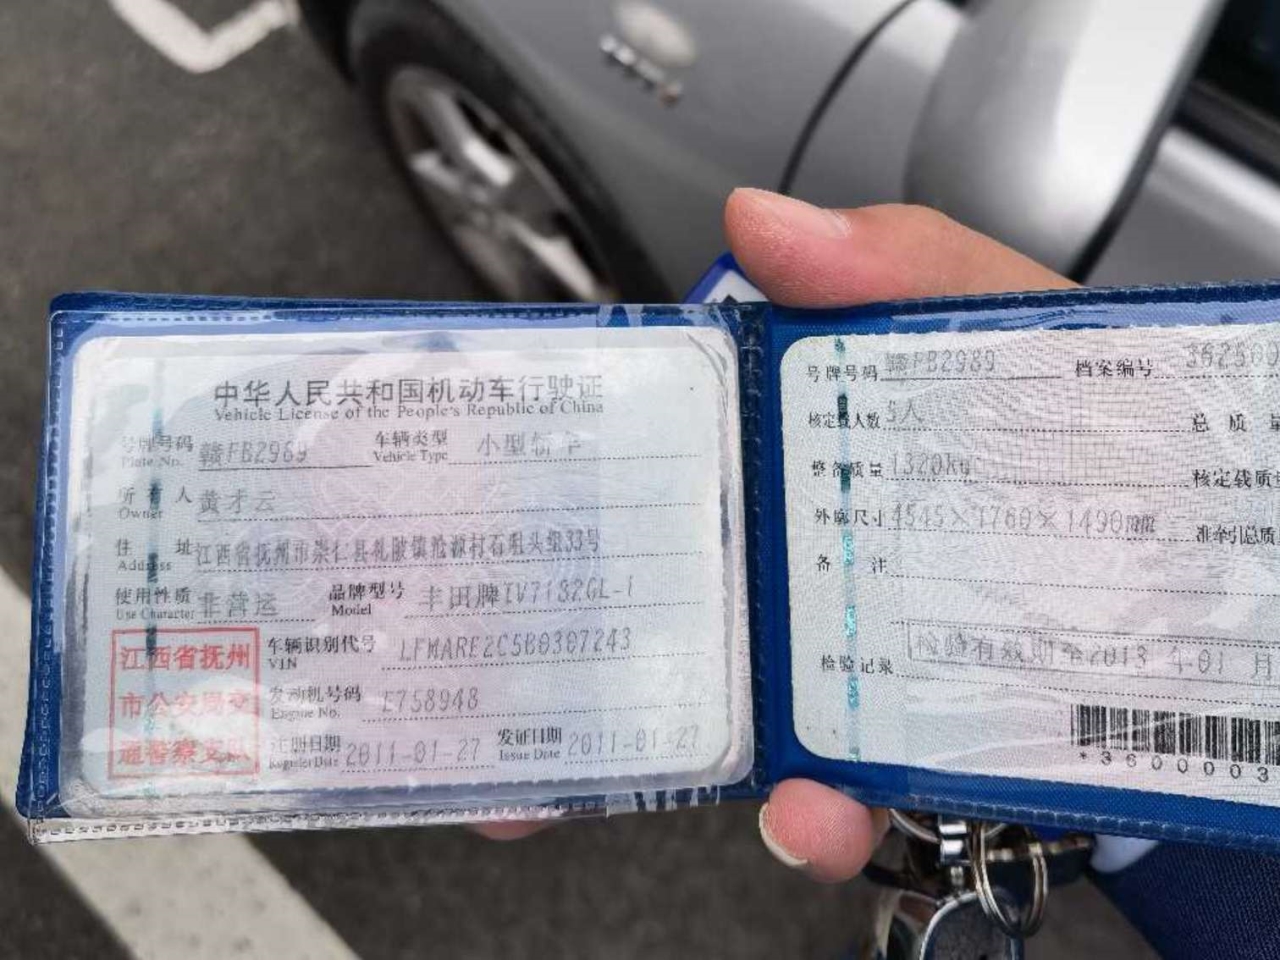 中华人民共和国机动车行驶证
Vehicle License of the People's Republic of China
号牌号码 赣FB2989 车辆类型 小型轿车
Plate No. Vehicle Type
所有人 黄才云
Owner
住址 江西省抚州市崇仁县礼陂镇沧源村石咀头组33号
Address
使用性质 非营运 品牌型号 丰田牌TV7182GL-I
Use Character Model
江西省抚州
市公安局交
通警察支队
车辆识别代号 LFMARE2C5B0307243
VIN
发动机号码 E758948
Engine No.
注册日期 2011-01-27 发证日期 2011-01-27
Register Date Issue Date
号牌号码 赣FB2989 档案编号 362500
核定载人数 5人 总质量
整备质量 1320kg 核定载质量
外廓尺寸 4545×1760×1490mm 准牵引总质
备注
检验记录 检验有效期至2013年01月
*3600003